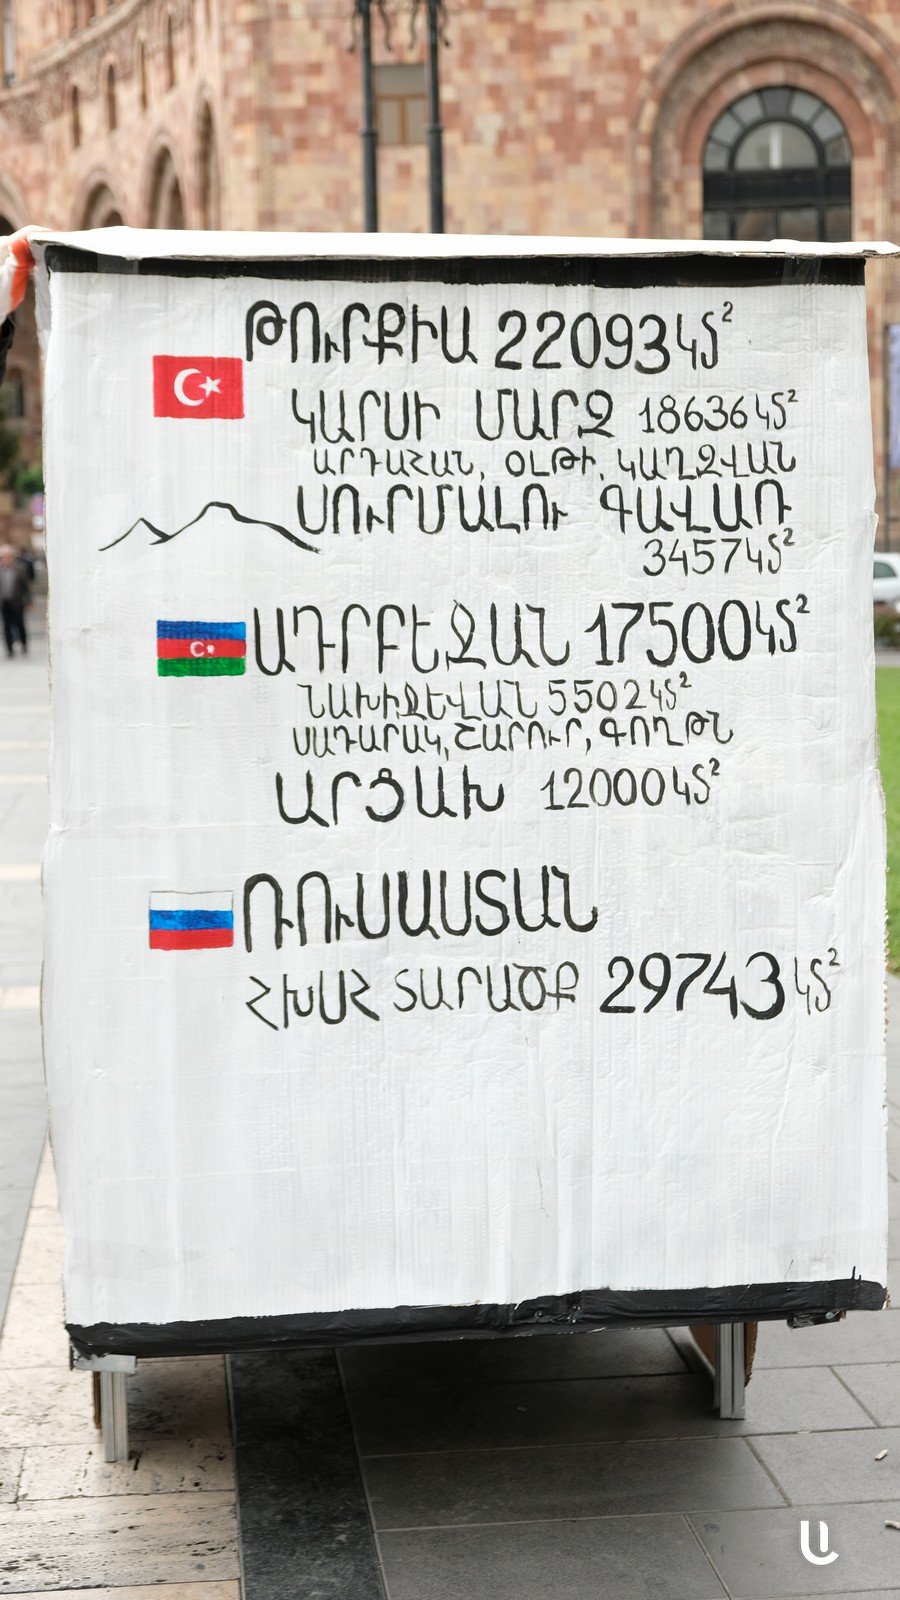 ԹՈՒՐՔԻԱ 22093 կմ²
ԿԱՐՍԻ ՄԱՐԶ 18636 կմ²
ԱՐԴԱՀԱՆ, ՕԼԹԻ, ԿԱՂԶՎԱՆ
ՍՈՒՐՄԱԼՈՒ ԳԱՎԱՌ
3457 կմ²
ԱԴՐԲԵՋԱՆ 17500 կմ²
ՆԱԽԻՋԵՎԱՆ 5502 կմ²
ՍԱԴԱՐԱԿ, ՇԱՐՈՒՐ, ԳՈՂԹՆ
ԱՐՑԱԽ 12000 կմ²
ՌՈՒՍԱՍՏԱՆ
ՀԽՍՀ ՏԱՐԱԾՔ 29743 կմ²